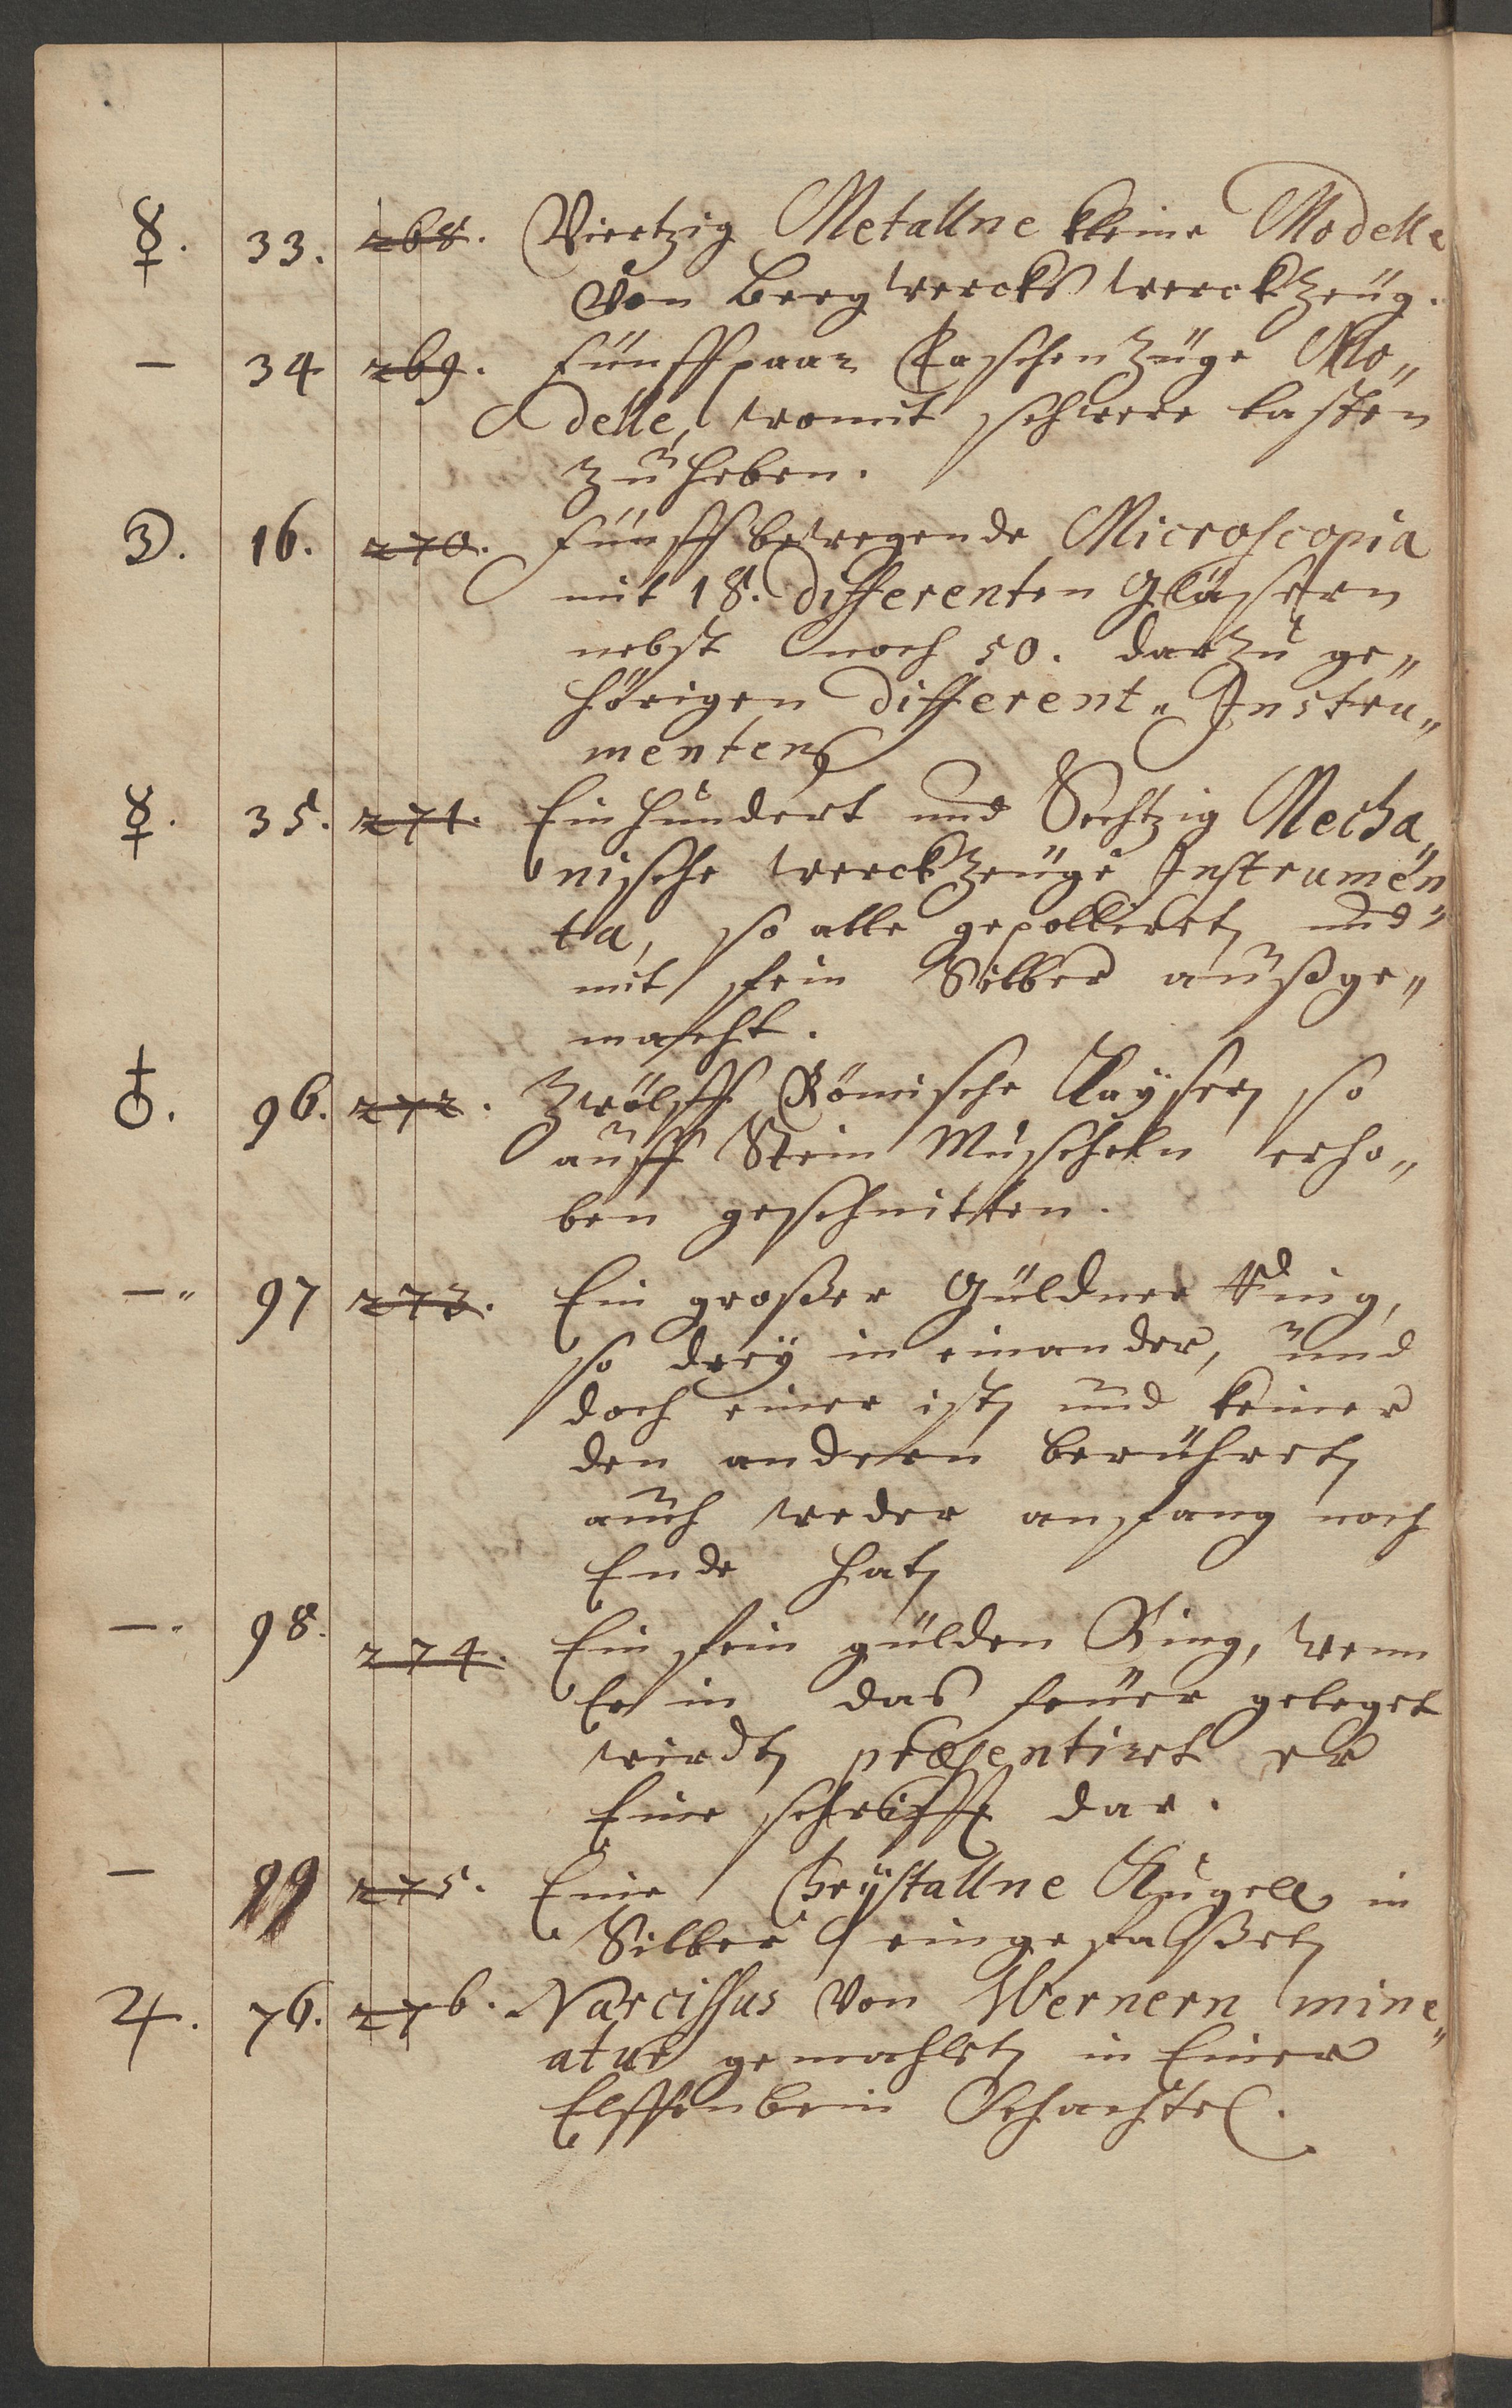 ☿. 33. 268. Viertzig Metallne kleine Modelle
Von Bergwercks werckzeüg.
— 34 269. Fünff paar Flaschenzüge Mo„
delle, womit schwere lasten
zu heben.
☽. 16. 270. Fünff bewegende Microscopia
mit 18. differenten Gläsern
nebst noch 50. darzu ge„
hörigen different„ Instru„
menten
☿. 35. 271. Ein hundert und Sechtzig Mecha„
nische werckzeüge Instrumen„
ta, so alle gepolliret, und
mit fein Silber außge„
macht.
♁. 96. 272. Zwölff Römische Kayser, so
auff Stein Muscheln erho„
ben geschnitten.
—„ 97 273. Ein großer Güldner Ring,
so dreÿ in einander, und
doch einer ist, und keiner
den andern berühret,
auch weder anfang noch
Ende hat,
—. 98. 274. Ein fein gülden Ring, wenn
Er in das feüer geleget
wirdt, præsentiret er
Eine schrifft dar.
— 99 275. Eine Chrÿstallne Kugell, in
Silber eingefaßet,
♃. 76. 276. Narcissus von Wernern mine„
atur gemahlet, in Einer
Elffenbein Schachtel.